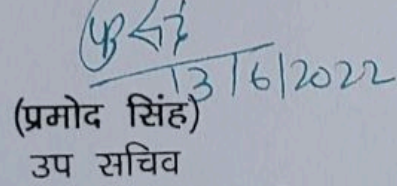 13/6/2022
(प्रमोद सिंह)
उप सचिव